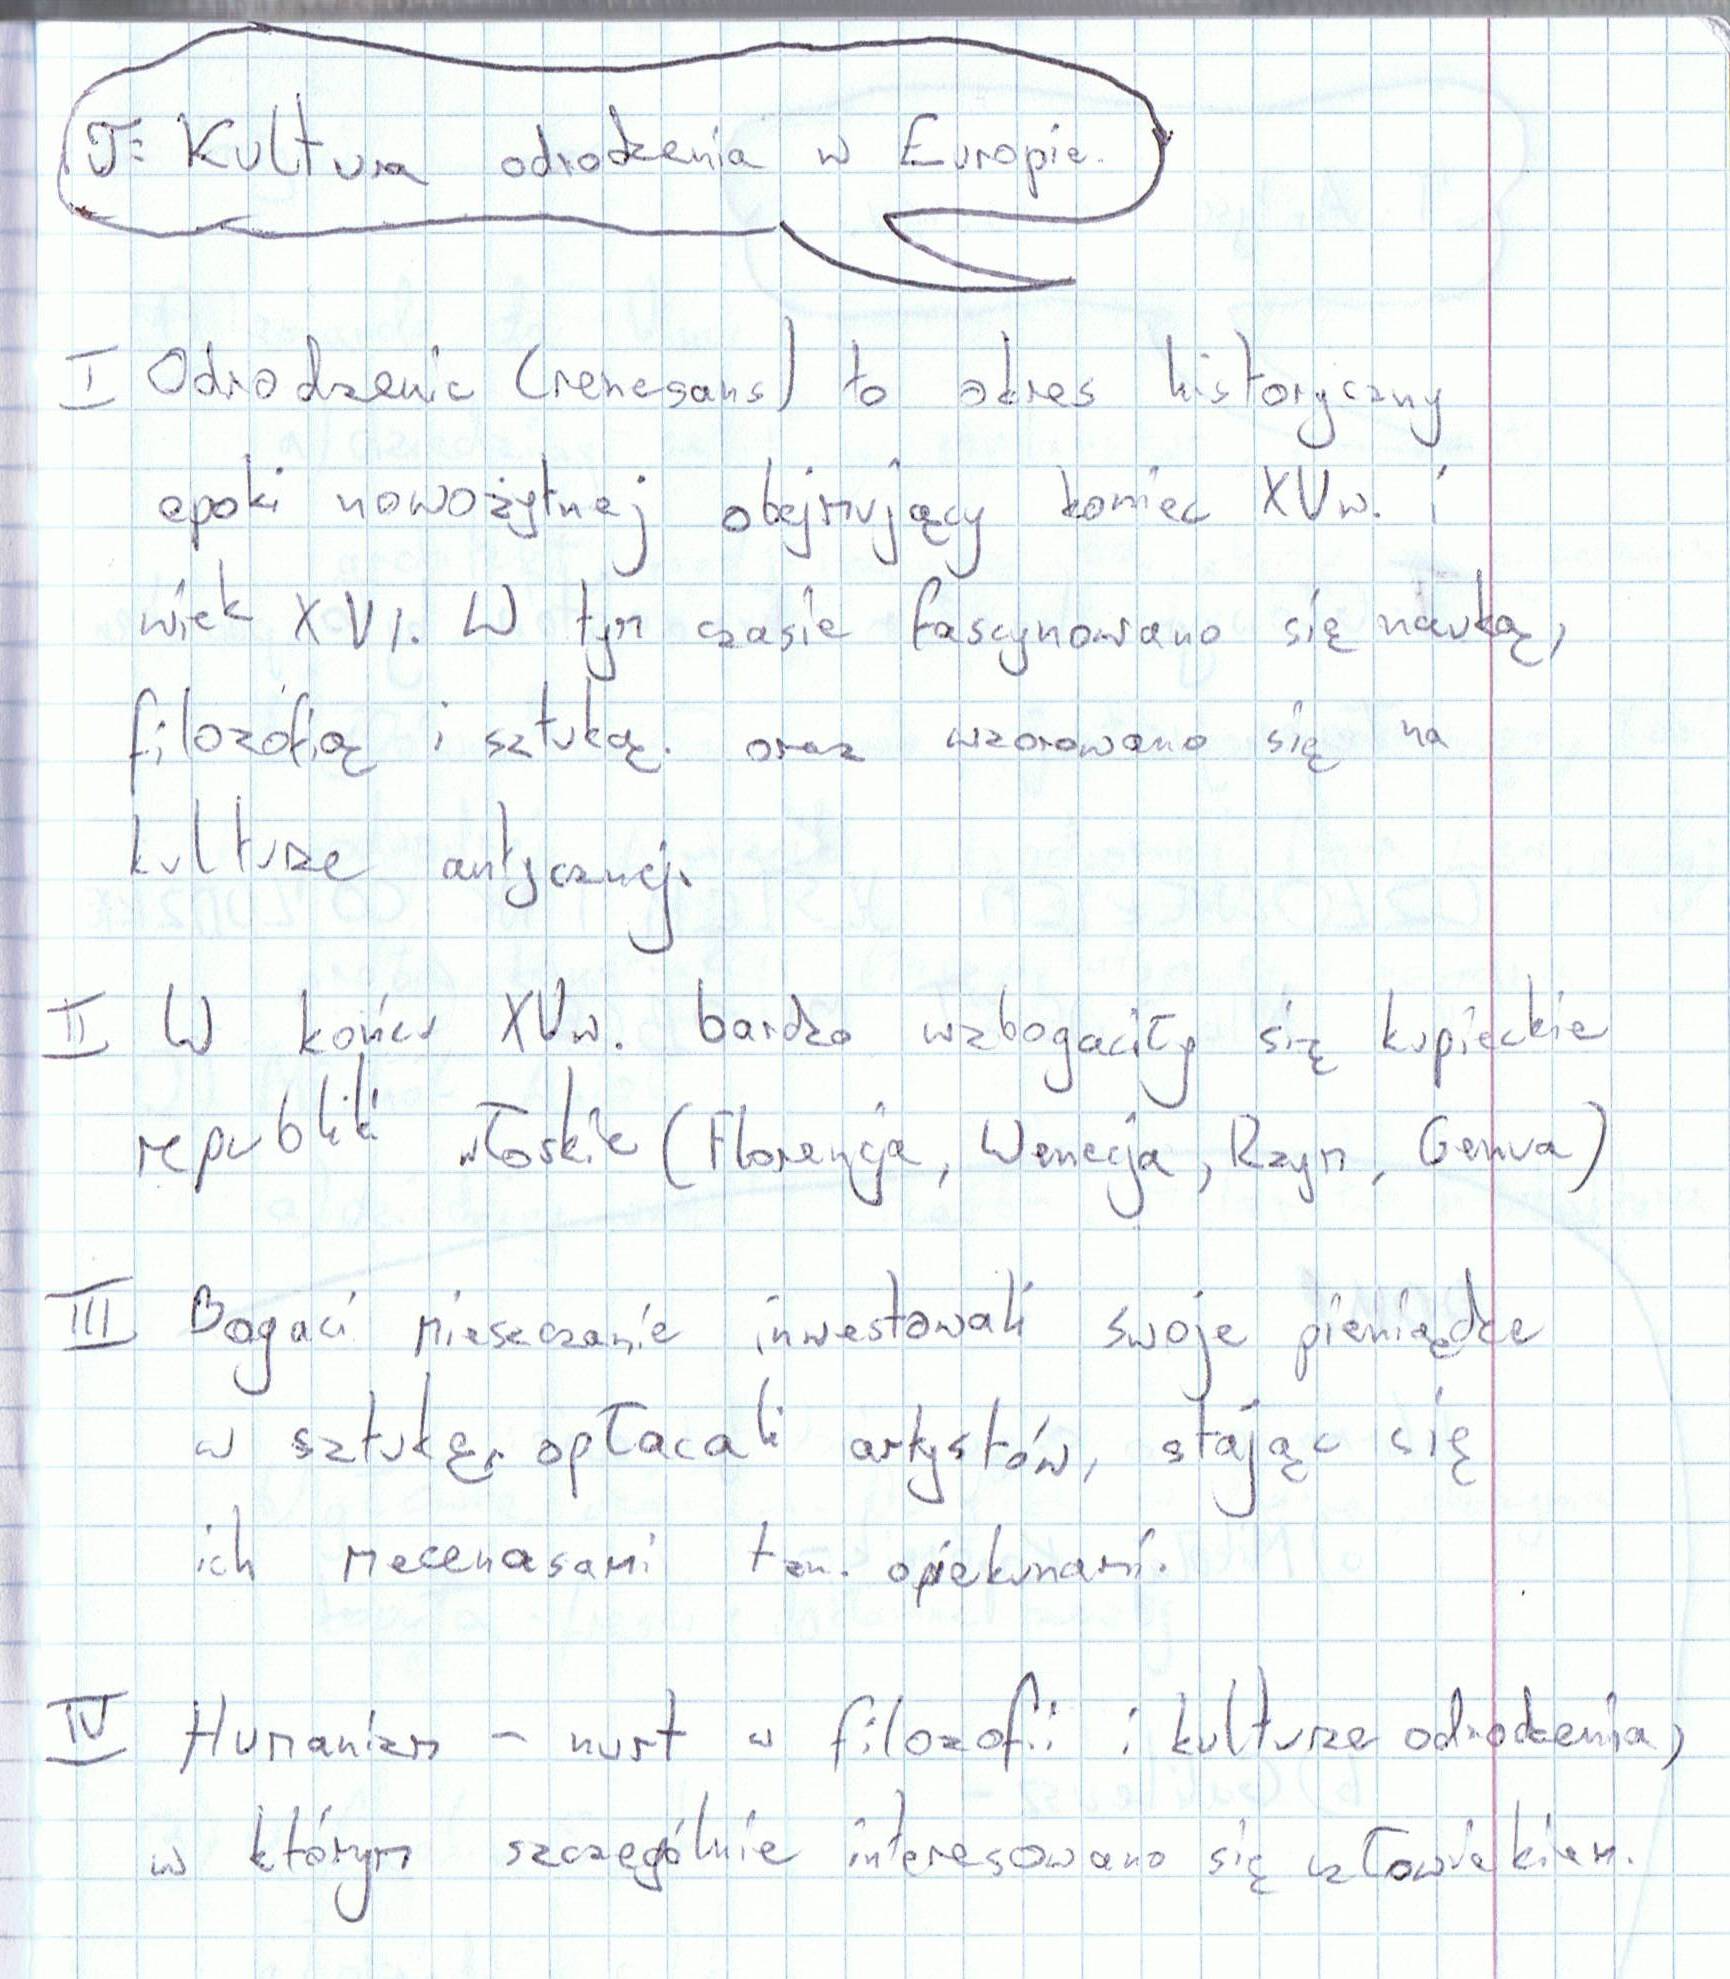 T: Kultura odrodzenia w Europie.
I Odrodzenie (renesans) to okres historyczny
epoki nowożytnej obejmujący koniec XVw. i
wiek XVI. W tym czasie fascynowano się nauką,
filozofią i sztuką. oraz wzorowano się na
kulturze antycznej.
II W końcu XVw. bardzo wzbogaciły się kupieckie
republiki włoskie (Florencja, Wenecja, Rzym, Genua)
III Bogaci mieszczanie inwestowali swoje pieniądze
w sztukę, opłacali artystów, stając się
ich mecenasami tzn. opiekunami.
IV Humanizm - nurt w filozofii i kulturze odrodzenia,
w którym szczególnie interesowano się człowiekiem.